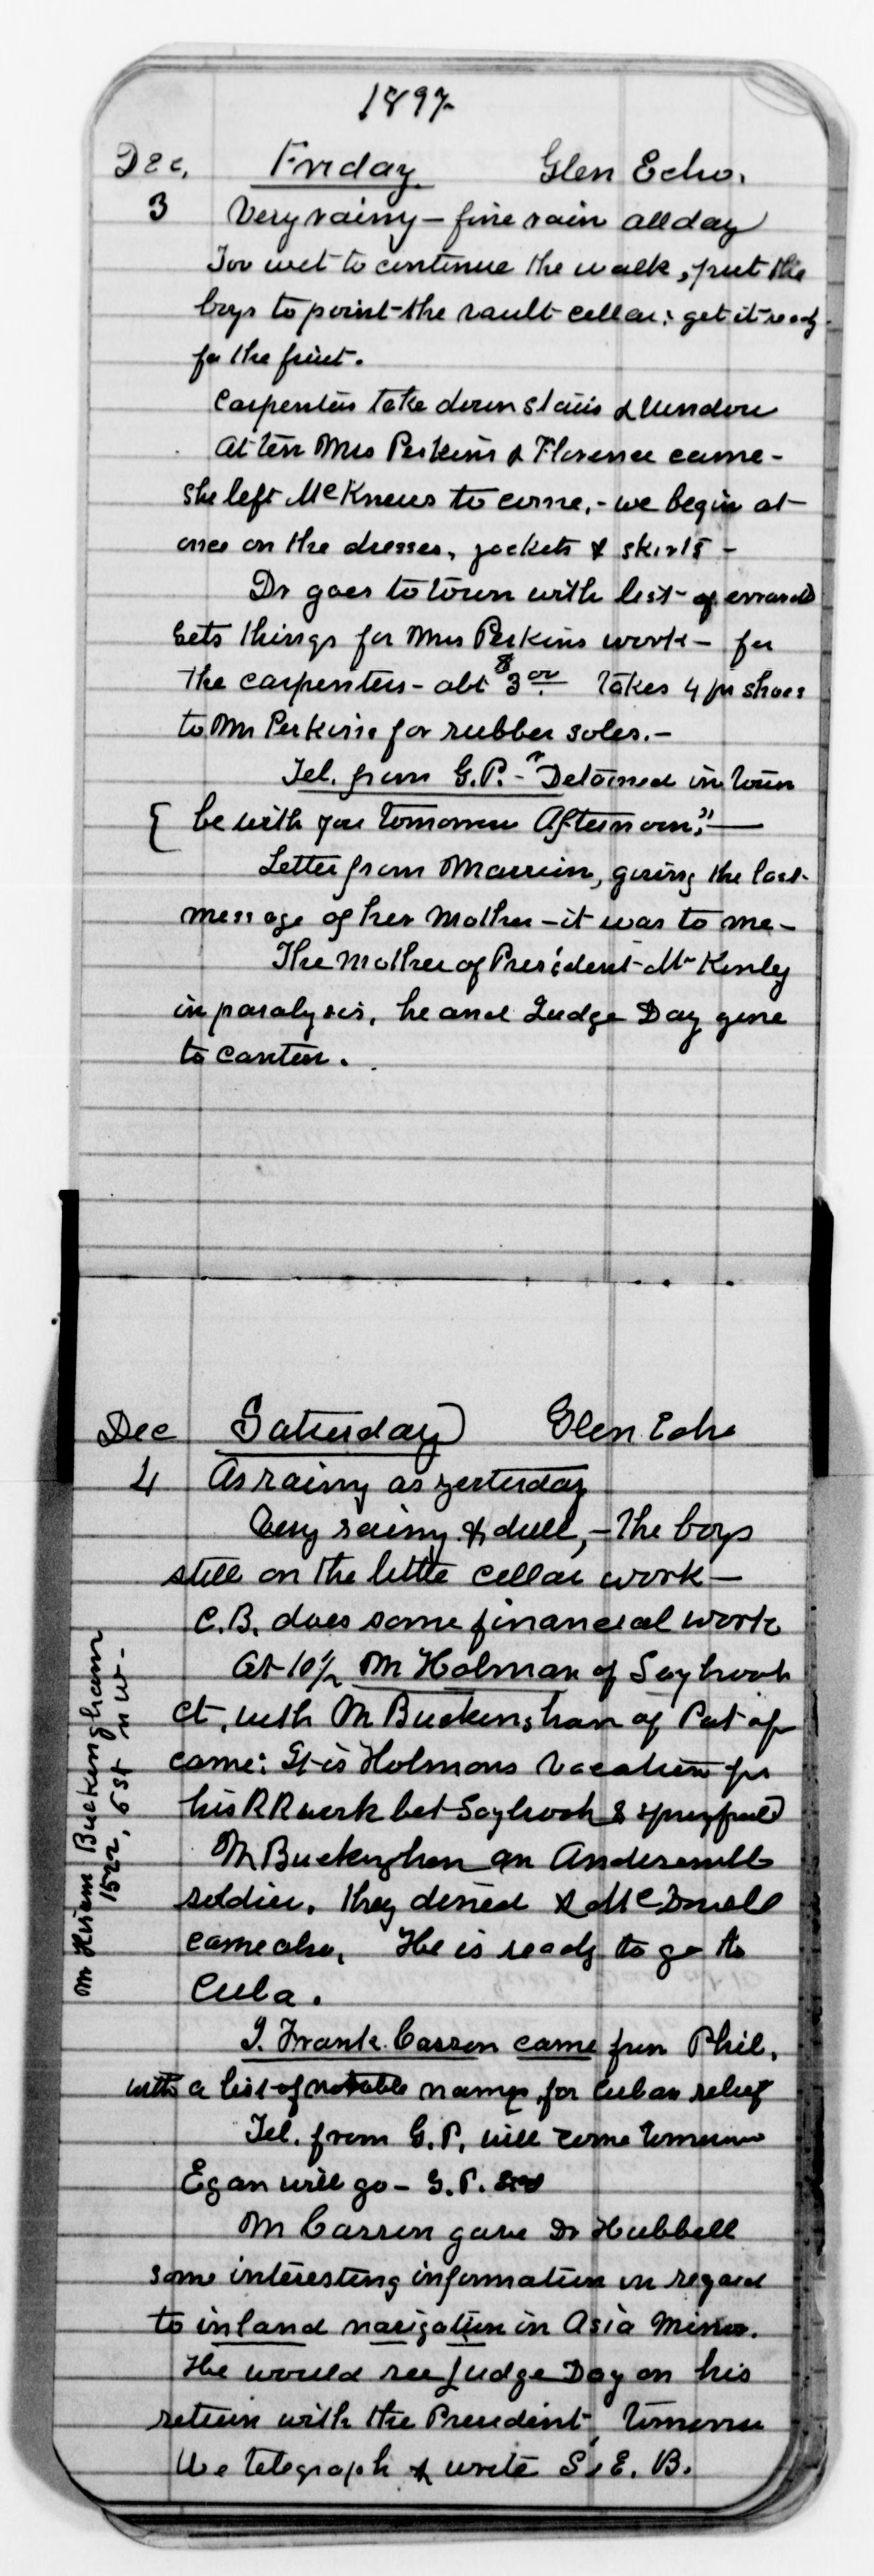 1897
Dec, Friday Glen Echo.
3 Very rainy - fine rain all day
Too wet to continue the walk, put the
boys to point the vault cellar: get it ready
for the fruit.
Carpenters take down stairs & window
At ten Mrs Perkins & Florence came -
She left McKnews to come, - we begin at
once on the dresses, jackets & skirts -
Dr goes to town with list of errands
Gets things for Mrs Perkins work - for
the carpenters - abt $3 00 takes 4 pr shoes
to Mr Perkins for rubber soles. -
Tel. from G.P. - "Detained in town
be with you tomorrow Afternoon," -
Letter from giving the last
message of her Mother - it was to me -
The Mother of President McKinly
in paralysis, he and Judge Day gone
to canton.
Dec Saturday Glen Echo
4 As rainy as yesterday
Very rainy & dull, - The boys
still on the little cellar work -
C.B. does some financial work
At 10 1/2 Mr Holman of Saybrook
Ct, with Mr Buckingham of Pat of
came: It is Holmans Vacation for
his RR work bet Saybrook & Springfield
Mr Buckingham an Andersonville
soldier. They dined &
came also, He is ready to go to
Cuba.
J. Frank Carson came from Phil,
with a list of notable names, for Cuban relief
Tel. from G.P. will come tomorrow
Egan will go - G.P.
Mr Carson gave Dr Hubbell
some interesting information in regard
to inland navigation in Asia Minor.
He would see Judge Day on his
return with the President, tomorrow
We telegraph & write S. E. B.
Mr Hiram Buckingham
1522, 6 St N W -